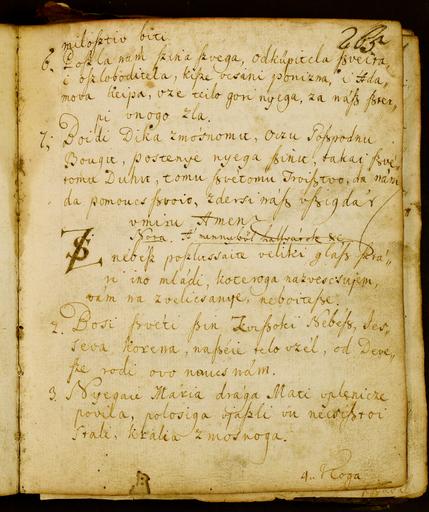 265
milosztiv biti.
6. Poszla nam szina szvega, odkúpitela szveita,
i oszloboditela, kisze vcsáni ponizma, i Ada,
mova keipa, vze teilo gori nyega, za náß szter,
pi vnogo zla.
7. Boidi Dika zmosnomu, Oczu Goszpodnu
Bougu, postenye nyega sinu, takai szvé
tomu Duhu, tomu szvétomu Troisztvo, da nám
da pomoucs szvoio, zdersi náß vszigdár
vmiru Amen
Nota. A
Z nebész poszlussaite veliki glász sztá,
ri ino mládi, koteroga nazvescsujem,
vam na zvelicsanye, neboitesze.
2. Bosi szvéti szin Zviszoki Nebész, Jes,
seva korena, nasséie telo vzél, od Deve,
sze rodi ovo noucs nám.
3. Nyegau Maria draga Mati vplenicze
povila, polosiga djászli vu necsisztoi
stali, krália zmosnoga.
4. Koga